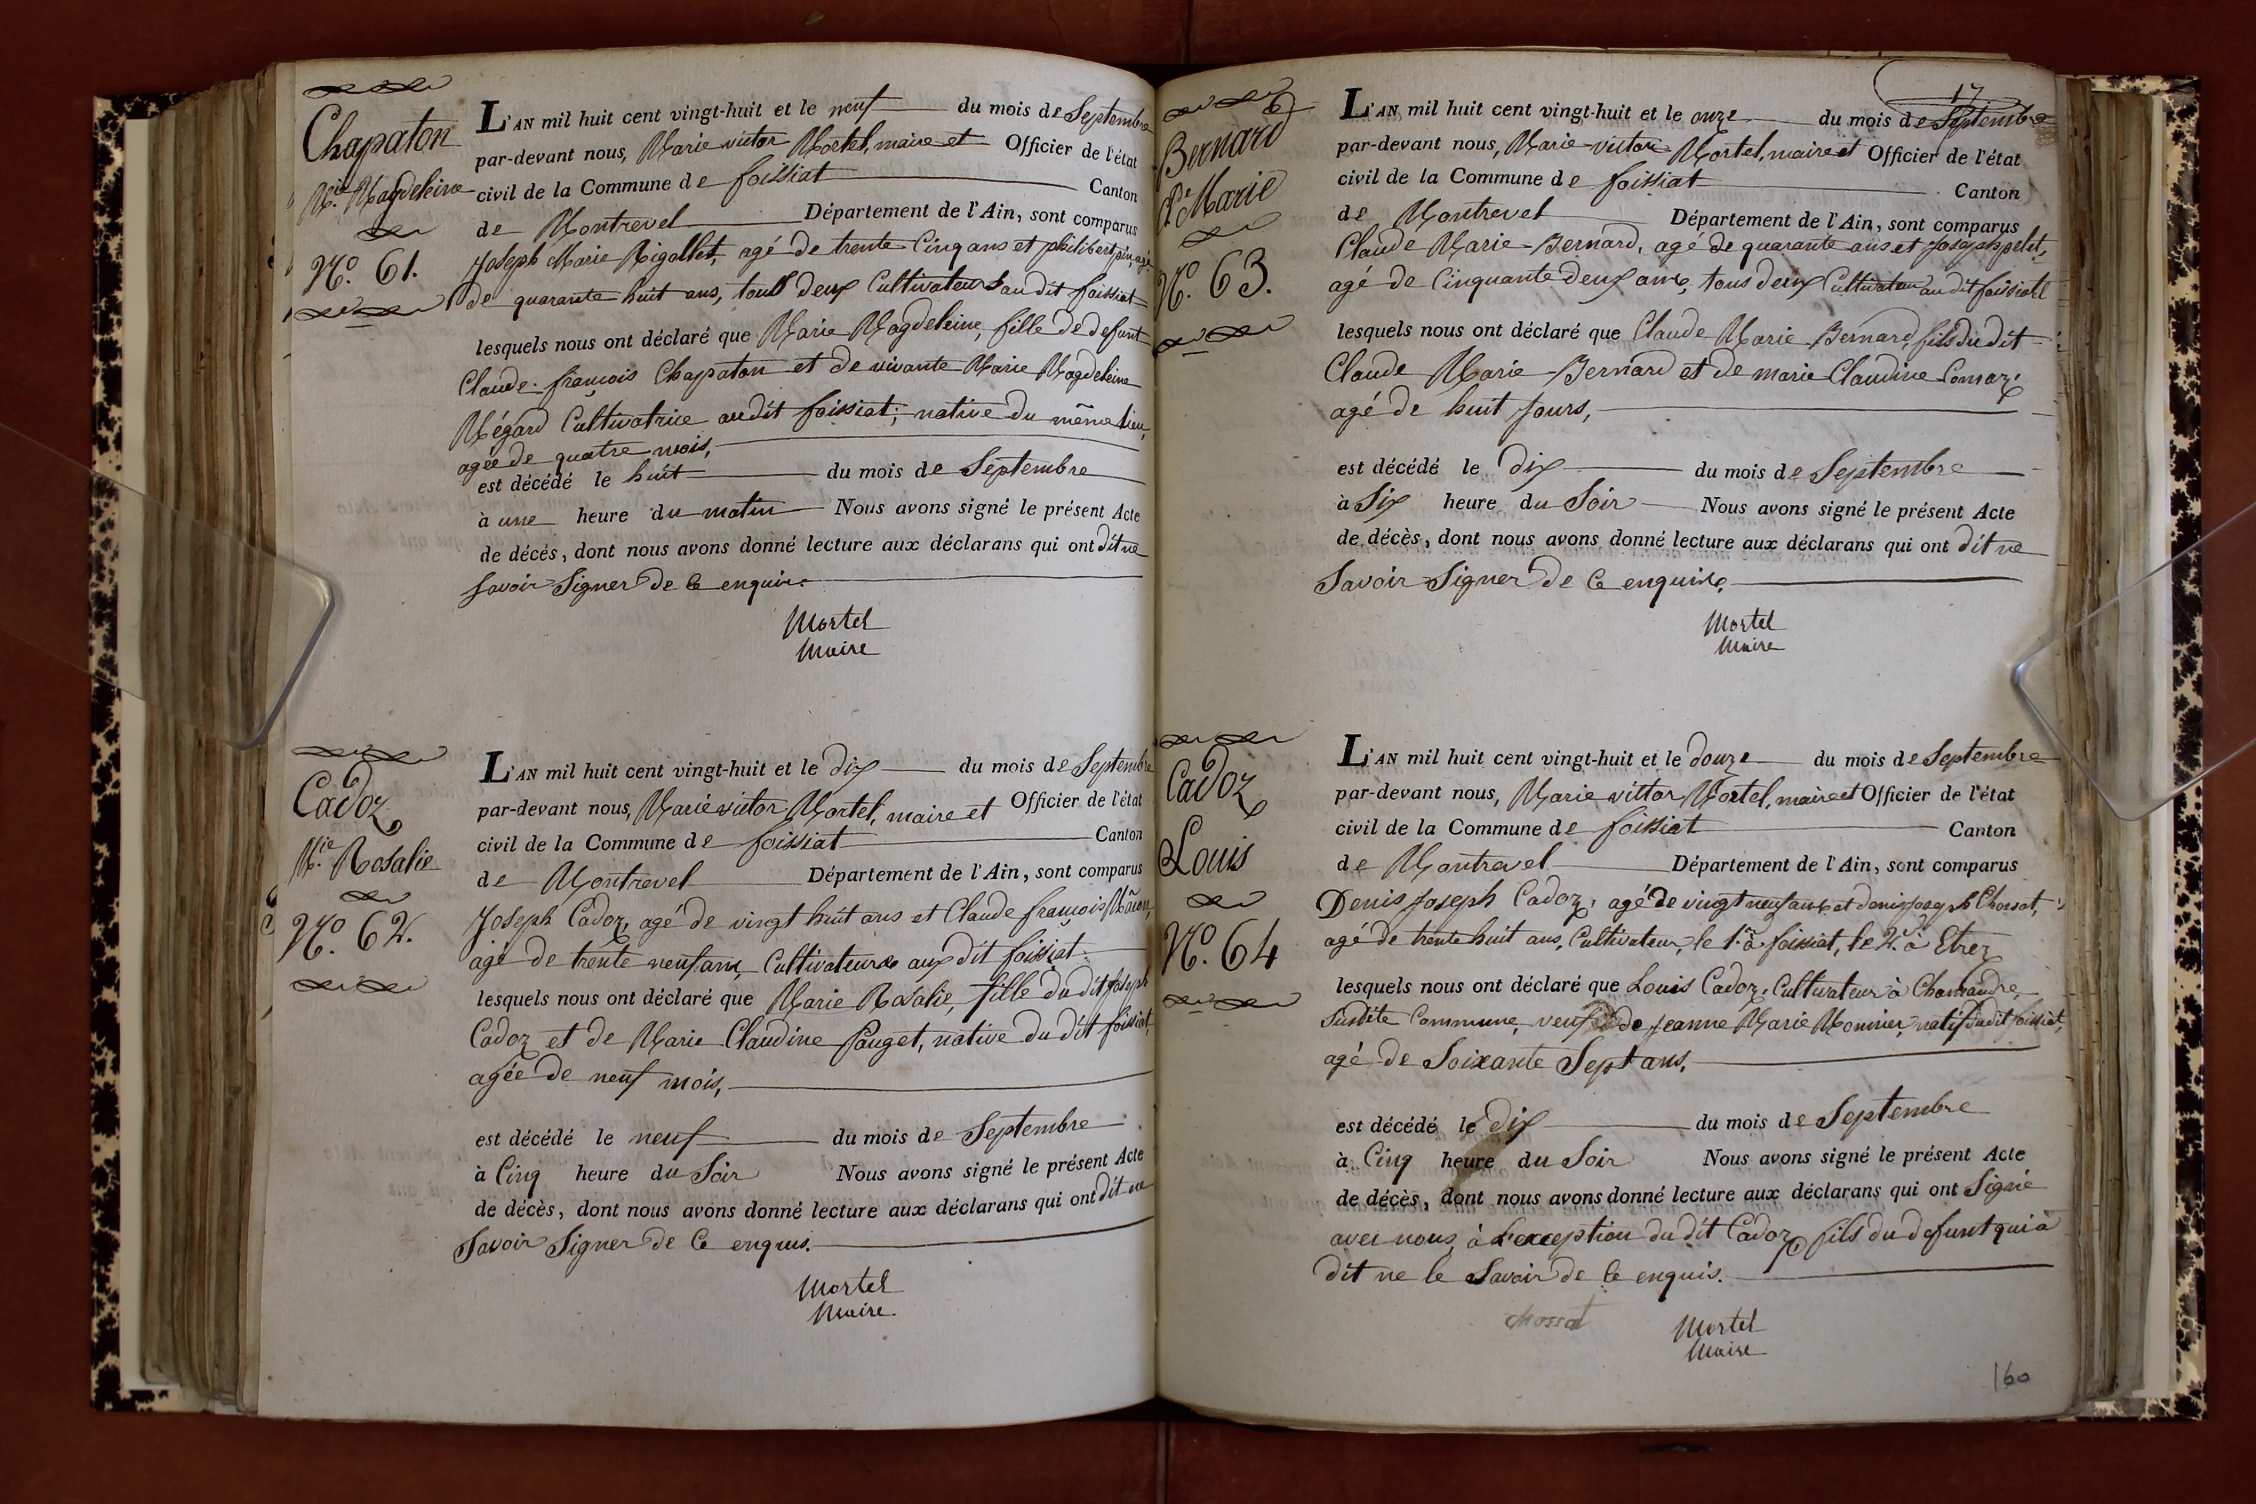 Chapaton
M.ie Magdeleine
N.o 61.
L'AN mil huit cent vingt-huit et le neuf du mois de Septembre
par-devant nous, Marie victor Mortel, maire et Officier de l'état
civil de la Commune de foissiat Canton
de Montrevel Département de l'Ain, sont comparus
Joseph Marie Rigollet, agé de trente Cinq ans et philibert pin, agé
de quarante huit ans, tous deux Cultivateurs au dit foissiat
lesquels nous ont déclaré que Marie Magdeleine, fille de defunt
Claude françois Chapaton et de vivante Marie Magdeleine
Mégard Cultivatrice audit foissiat; native du même lieu,
agée de quatre mois,
est décédé le huit du mois de Septembre
à une heure du matin Nous avons signé le présent Acte
de décés, dont nous avons donné lecture aux déclarans qui ont dit ne
savoir Signer de Ce enquis.
Mortel
Maire
Cadoz
M.ie Rosalie
N.o 62.
L'AN mil huit cent vingt-huit et le dix du mois de Septembre
par-devant nous, Marie victor Mortel, maire et Officier de l'état
civil de la Commune de foissiat Canton
de Montrevel Département de l'Ain, sont comparus
Joseph Cadoz, agé de vingt huit ans et Claude françois
agé de trente neuf ans, Cultivateurs aux dit foissiat
lesquels nous ont déclaré que Marie Rosalie, fille du dit Joseph
Cadoz et de Marie Claudine Pauget, native du dit foissiat
agée de neuf mois,
est décédé le neuf du mois de Septembre
à Cinq heure du Soir Nous avons signé le présent Acte
de décès, dont nous avons donné lecture aux déclarans qui ont dit ne
Savoir Signer de Ce enquis.
Mortel
Maire
17
Bernard
C.de Marie
N.o 63.
L'AN mil huit cent vingt-huit et le onze du mois de Septembre
par-devant nous, Marie-victor Mortel, maire et Officier de l'état
civil de la Commune de foissiat Canton
de Montrevel Département de l'Ain, sont comparus
Claude Marie Bernard, agé de quarante ans et Joseph pelet,
agé de Cinquante deux ans, tous deux Cultivateur au dit foissiat
lesquels nous ont déclaré que Claude Marie Bernard, fils du dit
Claude Marie Bernard et de marie Claudine
agé de huit Jours,
est décédé le dix du mois de Septembre
à Six heure du Soir Nous avons signé le présent Acte
de décès, dont nous avons donné lecture aux déclarans qui ont dit ne
Savoir Signer de Ce enquis.
Mortel
Maire
Cadoz
Louis
N.o 64
L'AN mil huit cent vingt-huit et le douze du mois de Septembre
par-devant nous, Marie victor Mortel, maire et Officier de l'état
civil de la Commune de foissiat Canton
de Montrevel Département de l'Ain, sont comparus
Denis Joseph Cadoz, agé de vingt neuf ans et denis Joseph Chossat,
agé de trente huit ans, Cultivateur, le 1.er à foissiat, le 2.d à Etrez
lesquels nous ont déclaré que Louis Cadoz, Cultivateur à Chamandre,
Susdite Commune, veuf de Jeanne Marie Monnier, natif dudit foissiat,
agé de Soixante Sept ans,
est décédé le dix du mois de Septembre
à Cinq heure du Soir Nous avons signé le présent Acte
de décès, dont nous avons donné lecture aux déclarans qui ont Signé
avec nous, à L'exception du dit Cadoz fils du defunt qui à
dit ne le Savoir de Ce enquis.
Chossat
Mortel
Maire
160